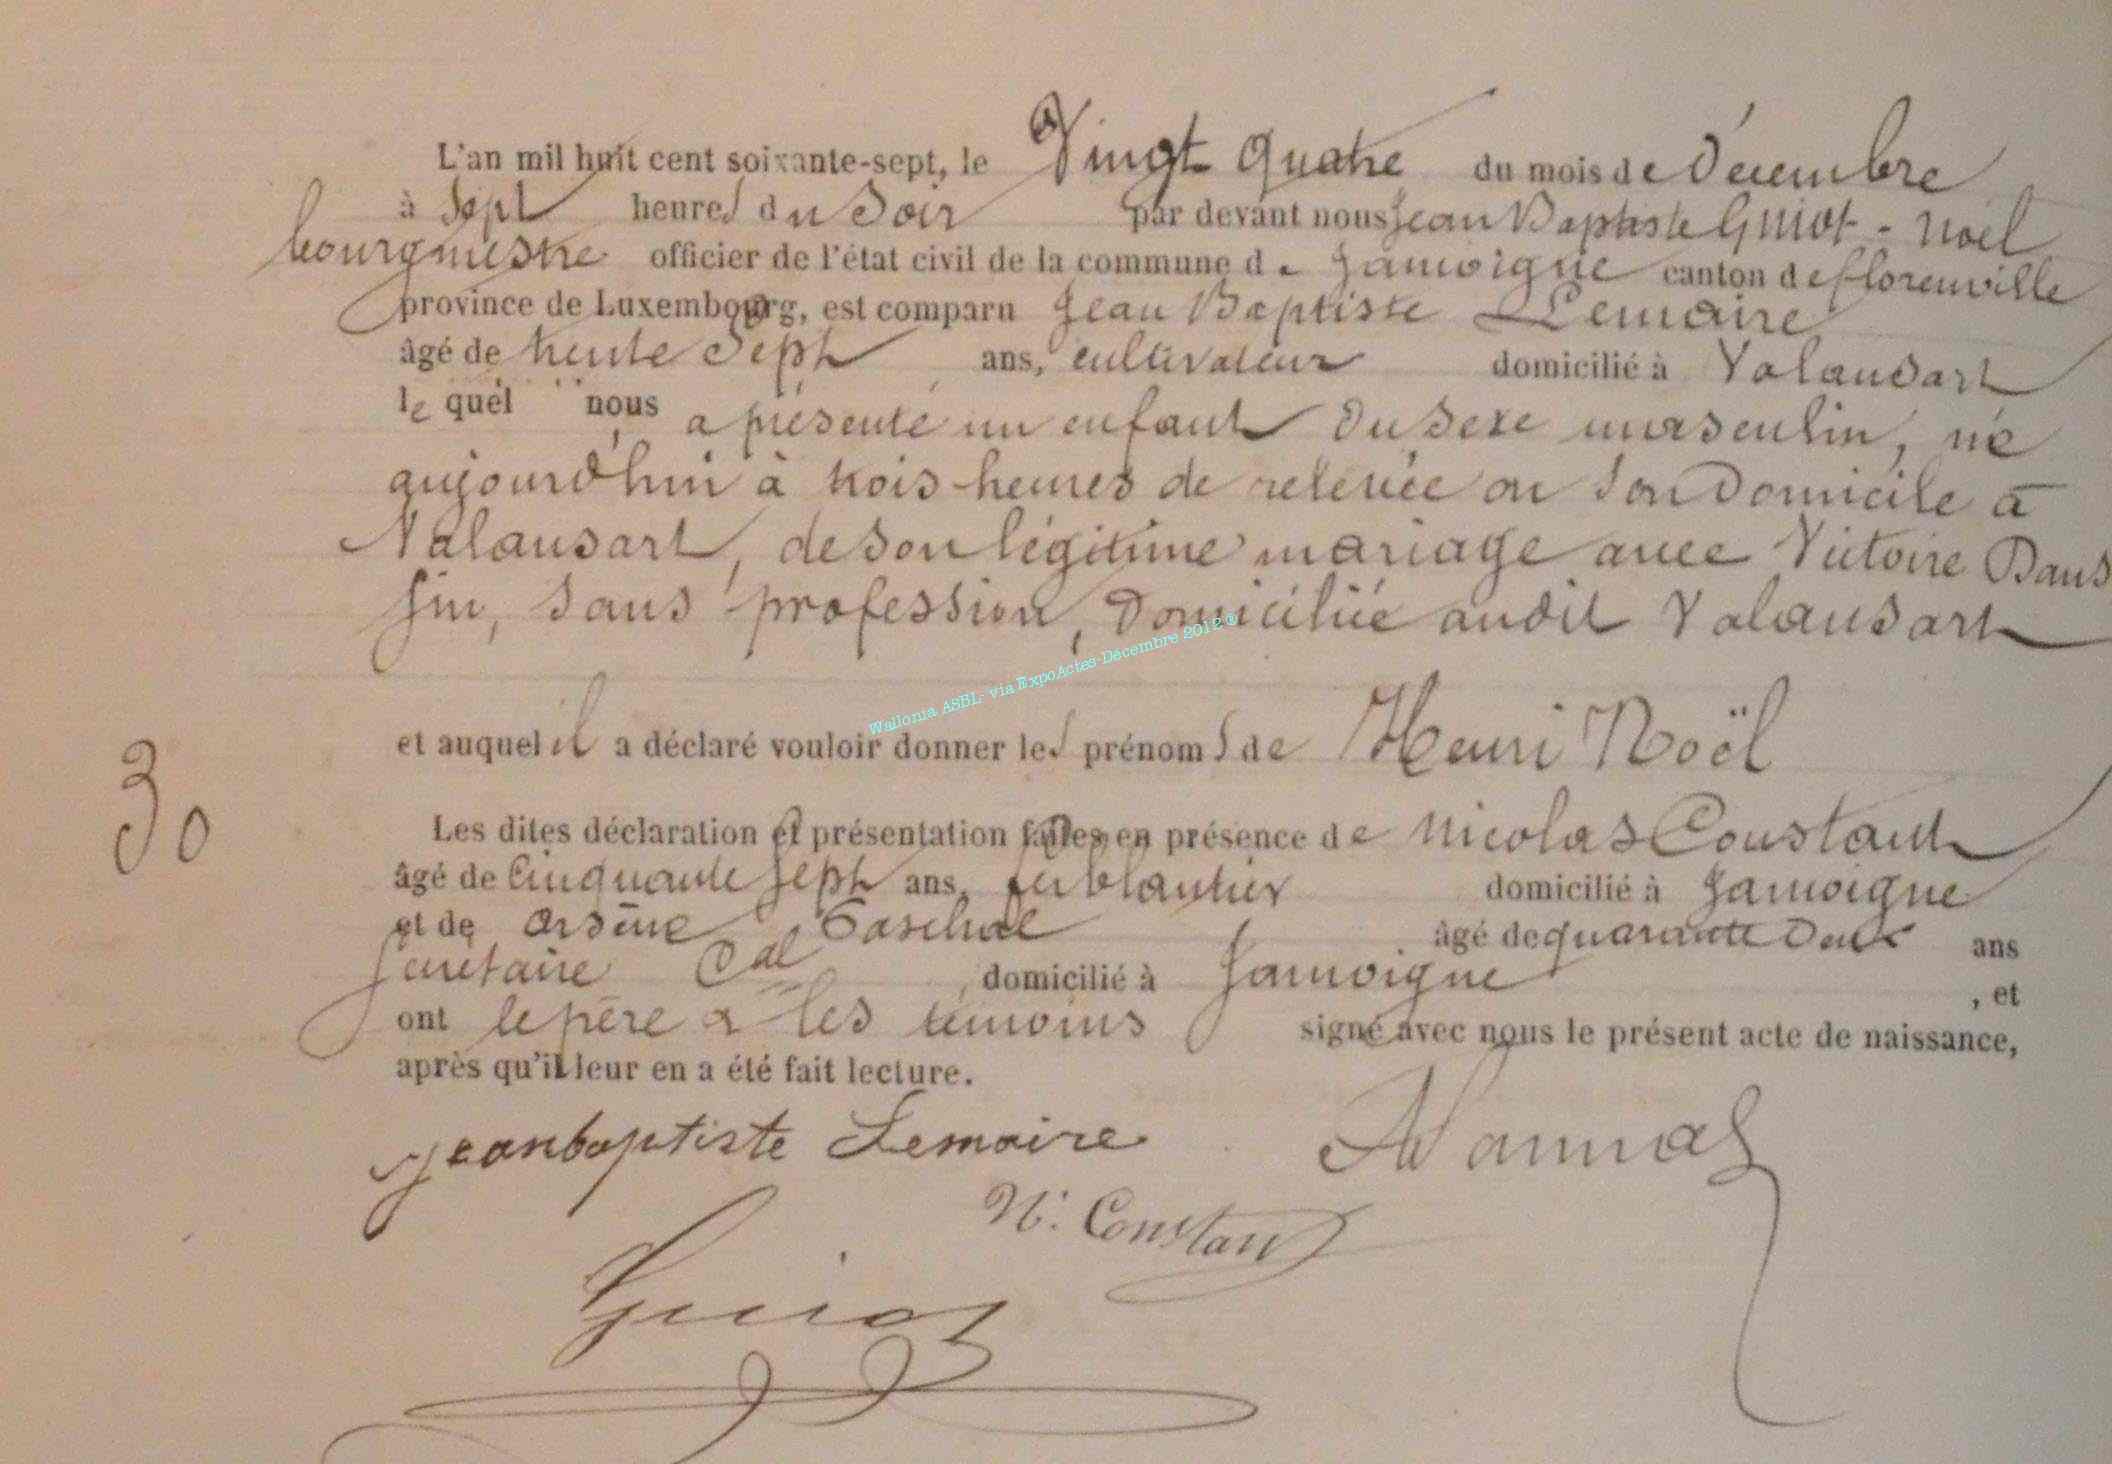 L'an mil huit cent soixante-sept, le Vingt quatre du mois de Décembre
à Sept heures du Soir par devant nous Jean Baptiste Guiot - Noël
bourgmestre officier de l'état civil de la commune de Jamoigne canton de florenville
province de Luxembourg, est comparu Jean Baptiste Lemaire
âgé de trente Sept ans, cultivateur domicilié à Valansart
le quel nous a présenté un enfant du sexe masculin, né
aujourd'hui à trois heures de relevée en son domicile à
Valansart, de son légitime mariage avec Victoire Daus
sin, sans profession, domiciliée audit Valansart
Wallonia ASBL- via ExpoActes-Décembre 2012 ®
et auquel il a déclaré vouloir donner les prénoms de Henri Noël
30
Les dites déclaration et présentation faites en présence de Nicolas Constant
âgé de Cinquante sept ans, ferblantier domicilié à Jamoigne
et de Arsène âgé de quarante Deux ans
Secrétaire Cal domicilié à Jamoigne , et
ont le père & les témoins signé avec nous le présent acte de naissance,
après qu'il leur en a été fait lecture.
Jeanbaptiste Lemaire
N. Constant
Guiot